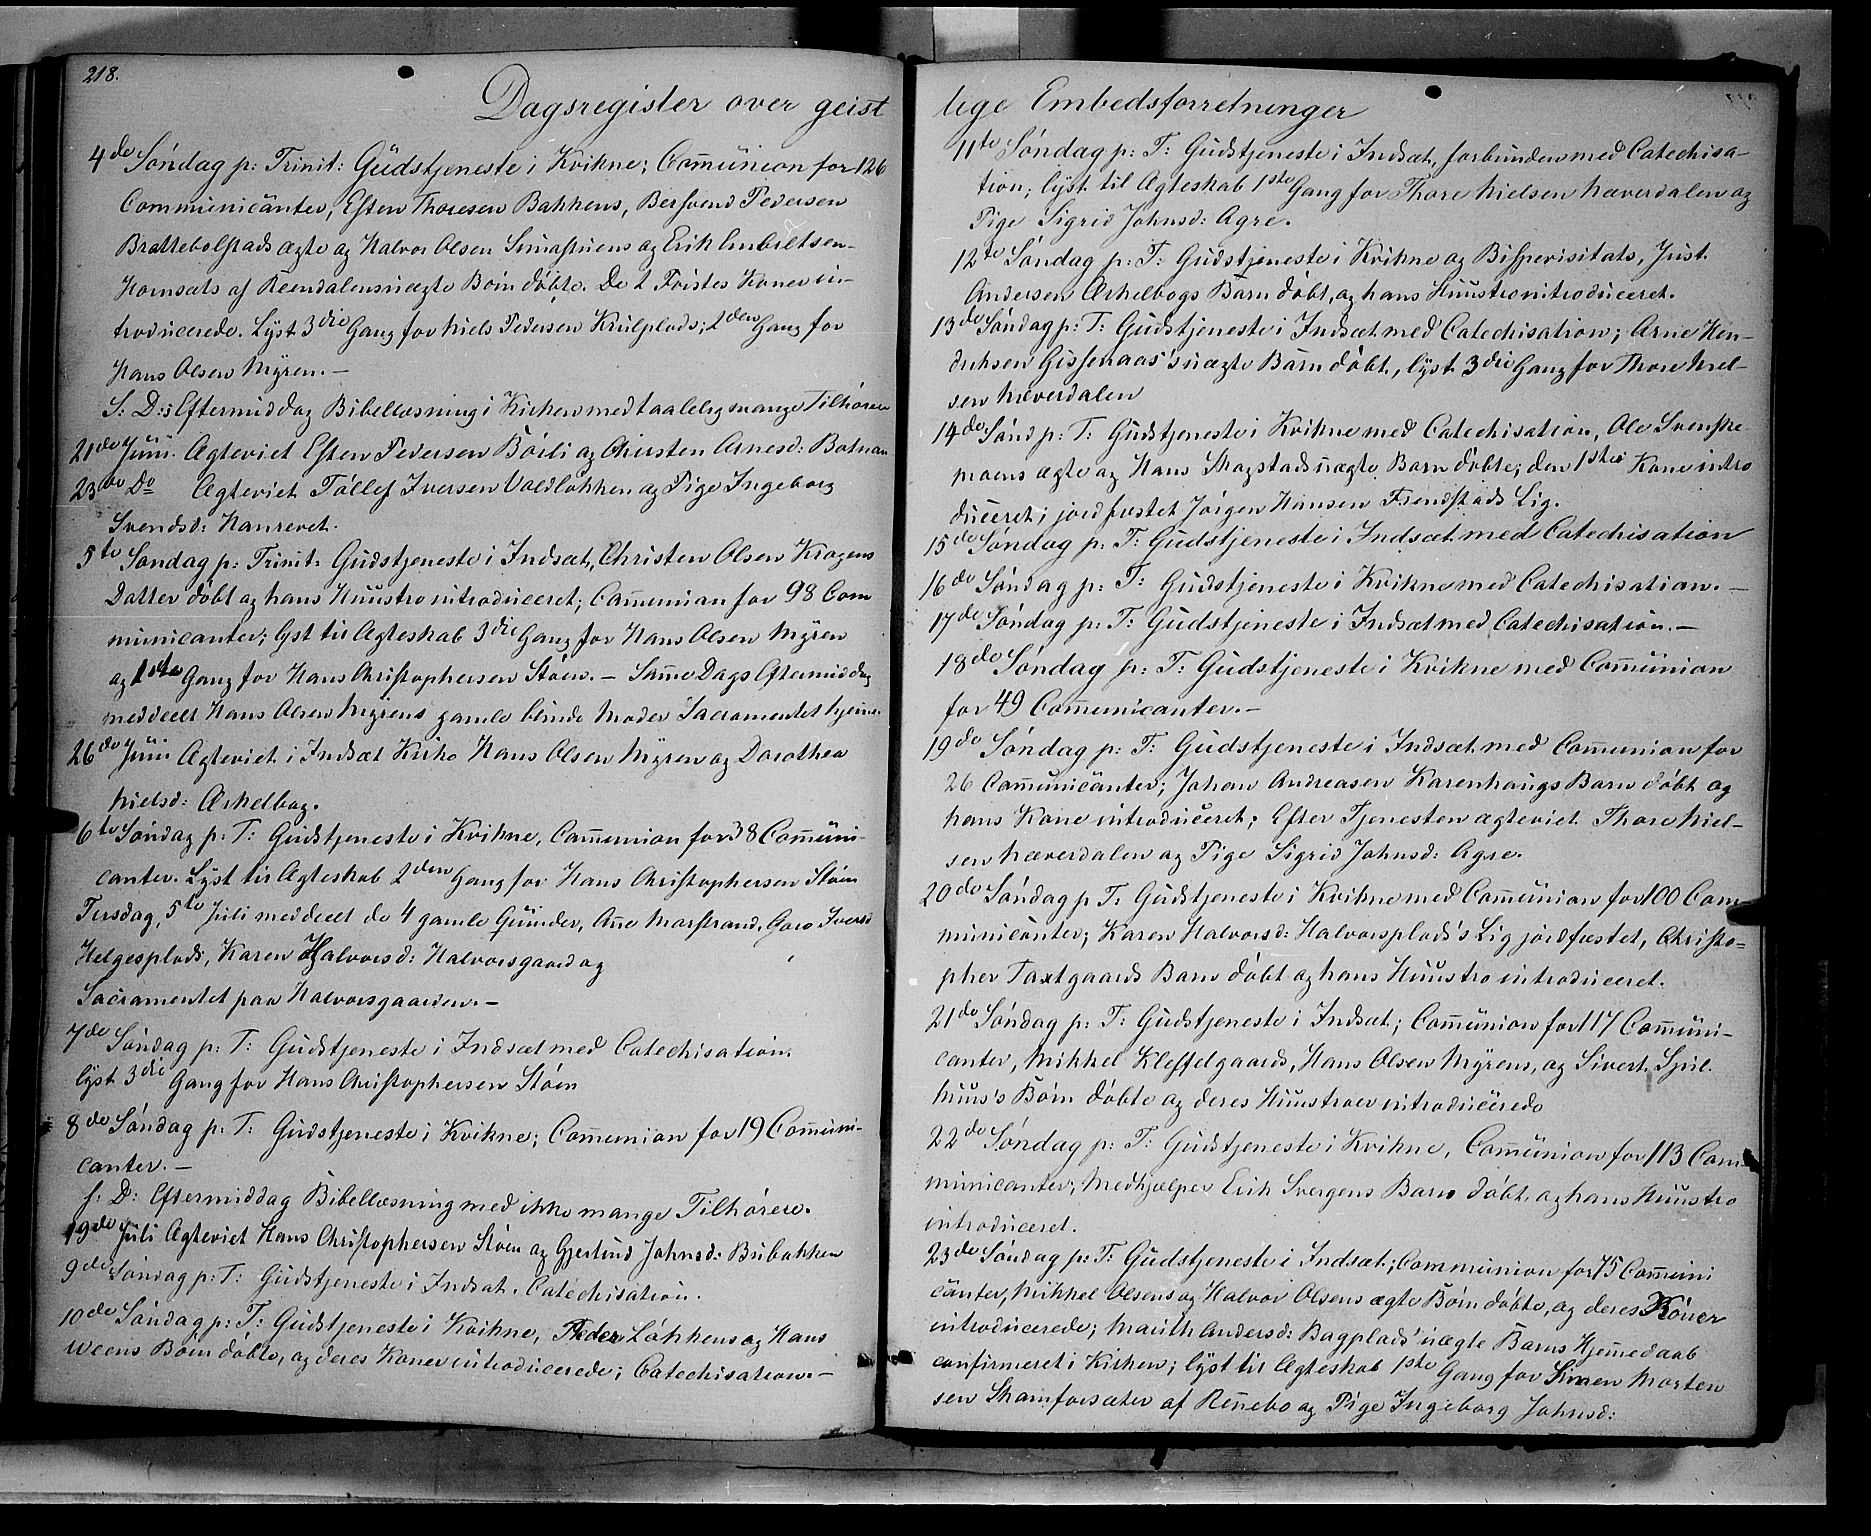 218.
Dagsregister over geist
4de Søndag p: Trinit: Gudstjeneste i Kvikne; Com̄union for 126
Communicanter, Esten Thoresen Bakkens, Bersvend Pedersen
Brattebolstads ægte og Halvor Olsen og Erik Embretsen
Hornsæts af Reendalen uægte Børn døbte. De 2 Førstes Koner in-
troducerede. Lyst 3die Gang for Niels Pedersen Krulplads; 2den Gang for
Hans Olsen Myren. —
S: D: Eftermiddag Bibellæsning i Kirken med taalelig mange Tilhørere
21de Juni. Ægteviet Esten Pedersen Bøili og Chirsten Arnesd: Botnan
23de Do Ægteviet Tøllef Iversen Voldløkken og Pige Ingeborg
Svendsd: Hanrevet.
5te Søndag p: Trinit: Gudstjeneste i Indsæt, Christen Olsen Kragens
Datter døbt og hans Huustro introduceret; Com̄union for 98 Com
municanter; lyst til Ægteskab 3die Gang for Hans Olsen Myren
og 1ste Gang for Hans Christophersen Støen. — Sam̄e Dags Eftermiddag
meddeelt Hans Olsen Myrens gamle blinde Moder Sacramentet hjem̄e.
26de Juni Ægteviet i Indsæt Kirke Hans Olsen Myren og Dorothea
Nielsd: Ørkelbog.
6te Søndag p: T: Gudstjeneste i Kvikne, Com̄union for 38 Com̄uni-
canter. Lyst til Ægteskab 2den Gang for Hans Christophersen Støen
Tirsdag, 5te Juli meddeelt de 4 gamle Qvinder, Ane Marstrand, Goro Iversd
Helgesplads, Karen Halvorsd: Halvorsgaard og
Sacramentet paa Halvorsgaarden. —
7de Søndag p: T: Gudstjeneste i Indsæt med Catechisation.
lyst 3die Gang for Hans Christophersen Støen
8de Søndag p: T: Gudstjeneste i Kvikne; Com̄union for 19 Com̄uni-
canter. —
S: D: Eftermiddag Bibellæsning med ikke mange Tilhørere.
19de Juli Ægteviet Hans Christophersen Støen og Gjertrud Johnsd: Bubakken
9de Søndag p: T: Gudstjeneste i Indsæt. Catechisation.
10de Søndag p: T: Gudstjeneste i Kvikne, Peder Løkkens og Hans
Weens Børn døbte, og deres Koner introducerede; Catechisation. —
lige Embedsforretninger
11te Søndag p: T: Gudstjeneste i Indsæt, forbunden med Catechisa-
tion; lyst til Ægteskab 1ste Gang for Thore Nielsen Næverdalen og
Pige Sigrid Johnsd: Agre.
12te Søndag p: T: Gudstjeneste i Kvikne og Bispevisitats, Just
Andersen Ørkelbogs Barn døbt, og hans Huustro introduceret.
13de Søndag p: T: Gudstjeneste i Indsæt med Catechisation; Arne Hen-
driksen Gissenaas's uægte Barn døbt, lyst 3die Gang for Thore Niel-
sen Næverdalen
14de Sønd p: T: Gudstjeneste i Kvikne med Catechisation, Ole Svenske-
moens ægte og Hans Skogstads uægte Barn døbte; den 1stes Kone intro
duceret; jordfæstet Jørgen Hansen Frendstads Lig.
15de Søndag p: T: Gudstjeneste i Indsæt med Catechisation
16de Søndag p: T: Gudstjeneste i Kvikne med Catechisation. —
17de Søndag p: T: Gudstjeneste i Indsæt med Catechisation. —
18de Søndag p: T: Gudstjeneste i Kvikne med Com̄union
for 49 Com̄unicanter. —
19de Søndag p: T: Gudstjeneste i Indsæt med Com̄union for
26 Com̄unicanter; Johan Andreasen Karenhaugs Barn døbt og
hans Kone introduceret; Efter Tjenesten ægteviet Thore Niel-
sen Næverdalen og Pige Sigrid Johnsd: Agre.
20de Søndag p T: Gudstjeneste i Kvikne med Com̄union for 100 Com
municanter; Karen Halvorsd: Halvorsplads's Lig jordfæstet, Christo-
pher Taxtgaards Barn døbt og hans Huustro introduceret.
21de Søndag p: T: Gudstjeneste i Indsæt; Com̄union for 117 Com̄uni-
canter, Mikkel Kleffelgaards, Hans Olsen Myrens, og Sivert Spil-
huus's Børn døbte og deres Huustroer introducerede
22de Søndag p: T: Gudstjeneste i Kvikne, Com̄union for 113 Com-
municanter; Medhjælper Erik Svergens Barn døbt, og hans Huustro
introduceret.
23de Søndag p: T: Gudstjeneste i Indsæt; Communion for 75 Com̄uni
canter, Mikkel Olsens og Halvor Olsens ægte Børn døbte, og deres Koner
introducerede; Marith Andersd: Bagplads' uægte Barns Hjem̄edaab
confirmeret i Kirken; lyst til Ægteskab 1ste Gang for Simen Morten
sen Skamforsæter af Ren̄ebo og Pige Ingeborg Johnsd: